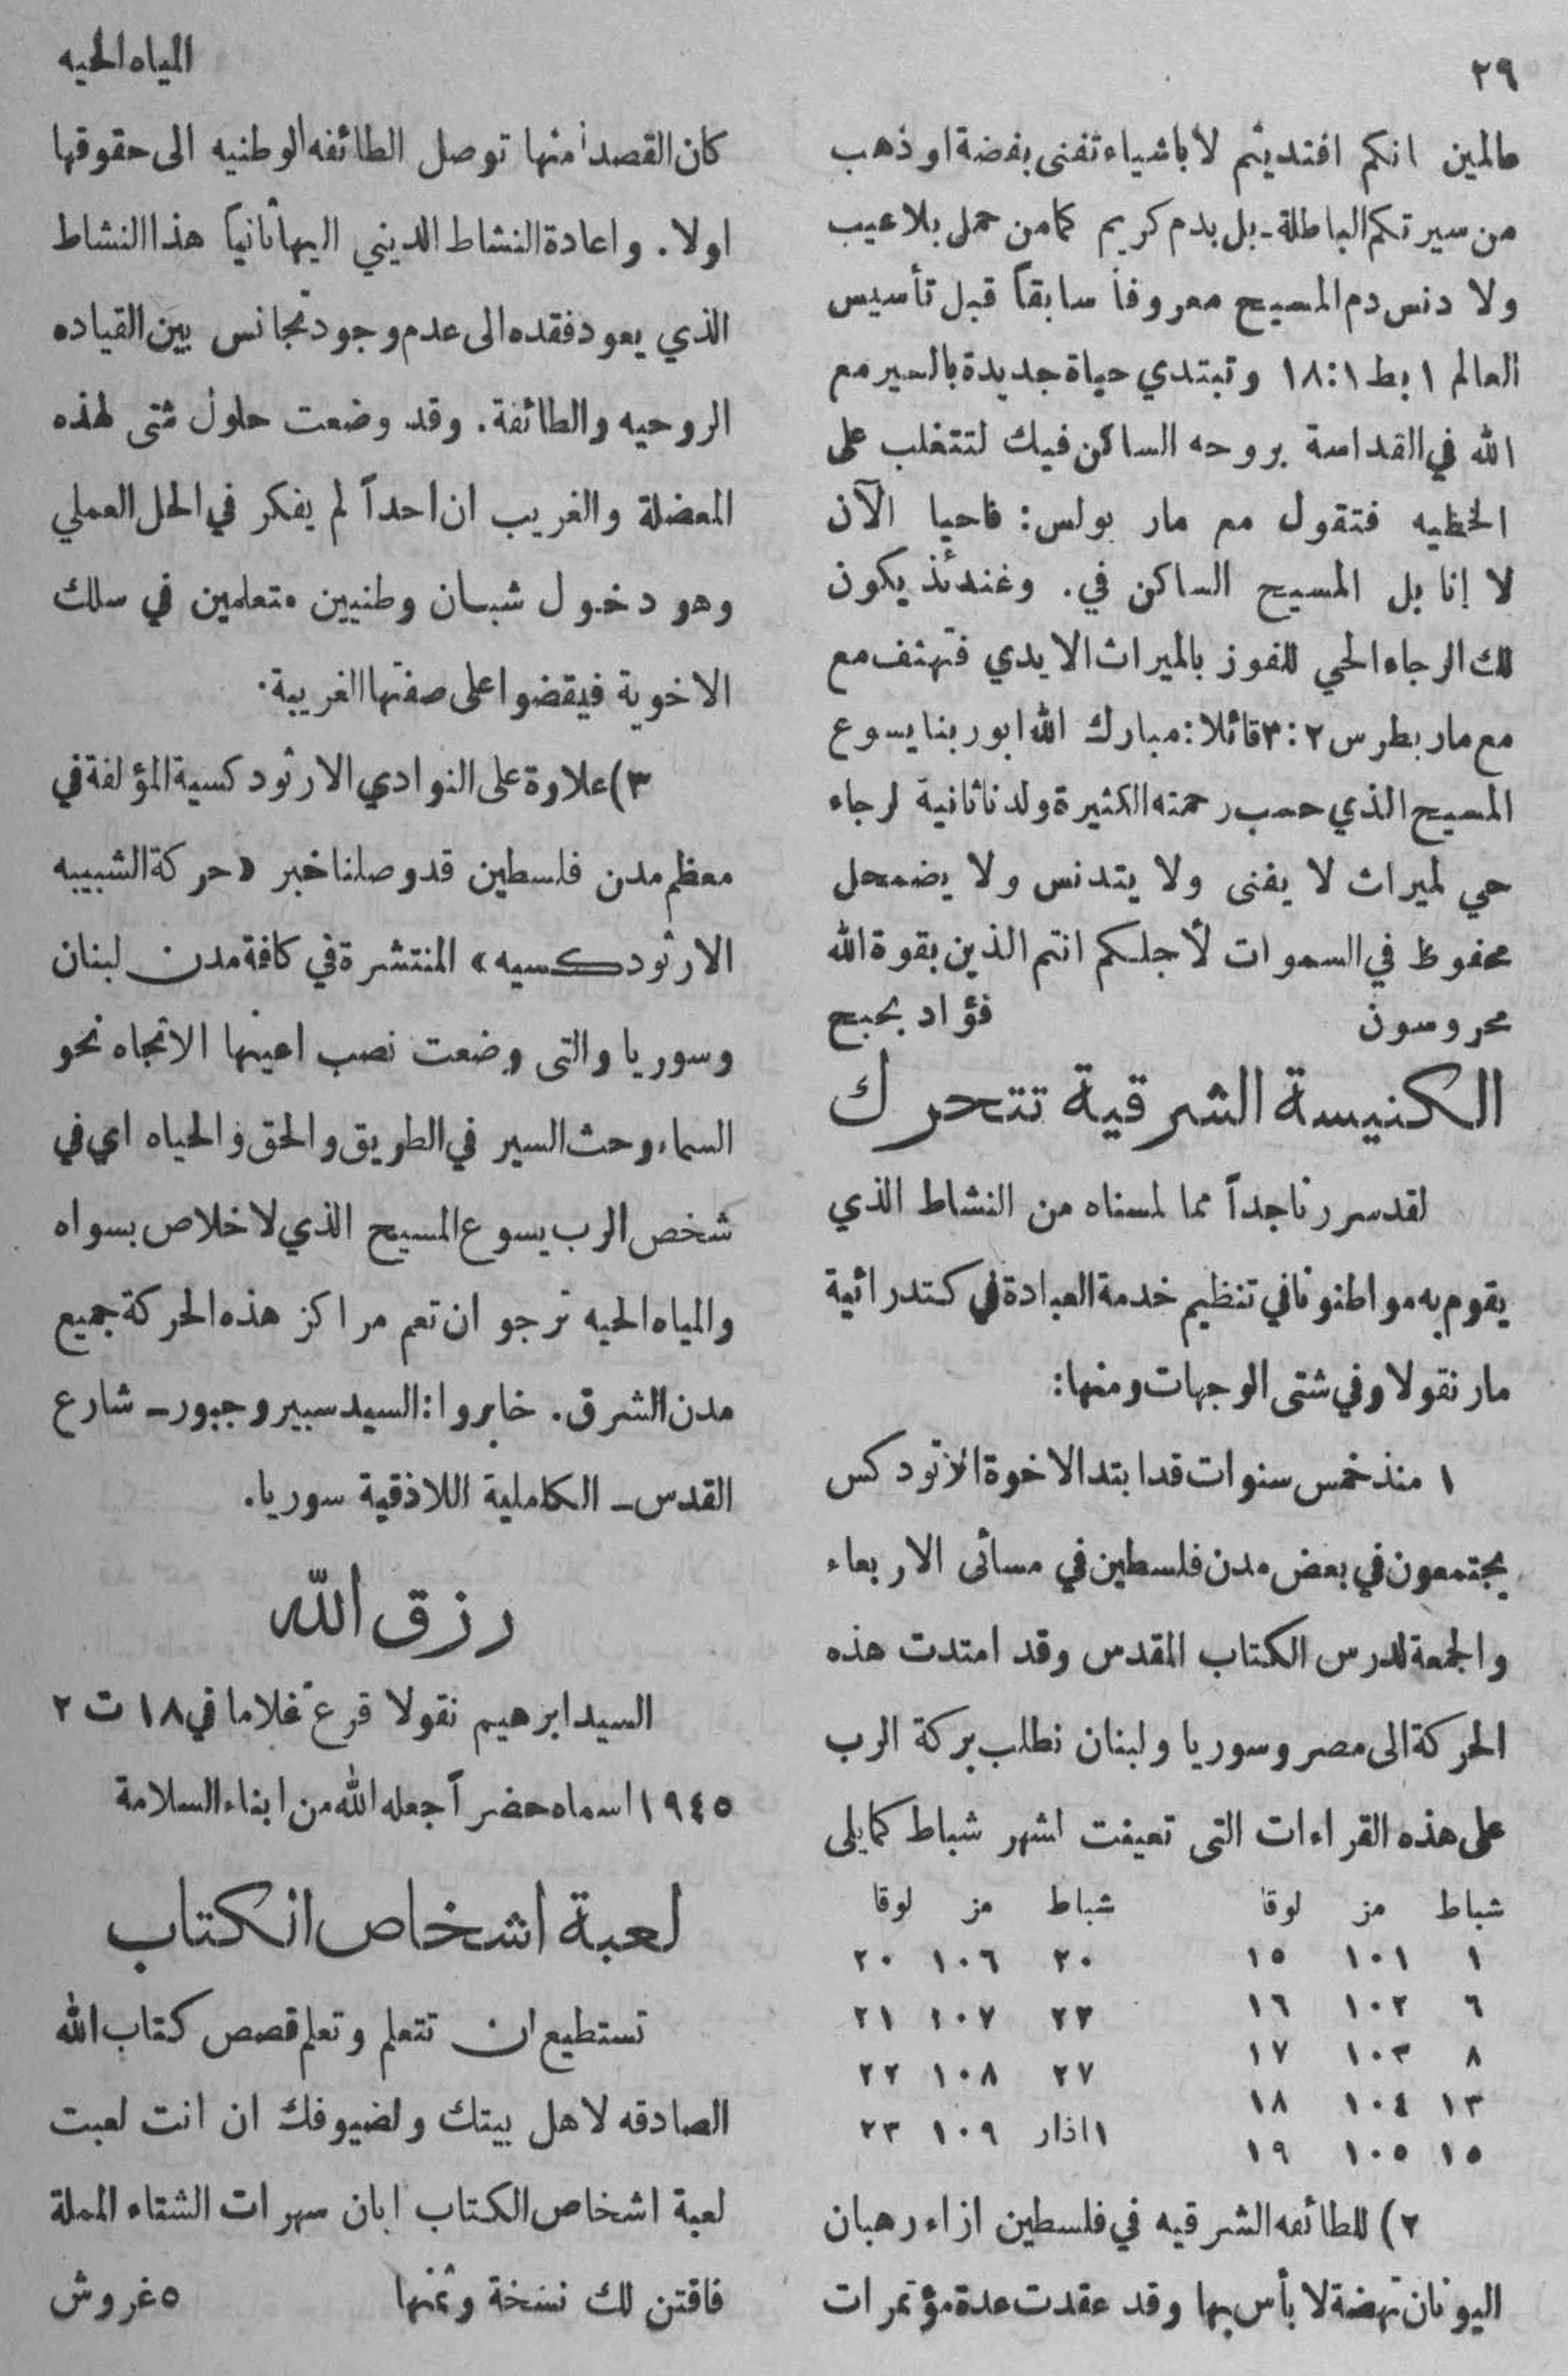 ٢٩
المياه الحيه
عالمين انكم افتديتم لا باشياء تفنى بفضة او ذهب
من سيرتكم الباطلة ـ بل بدم كريم كما من حمل بلا عيب
ولا دنس دم المسيح معروفاً سابقاً قبل تأسيس
العالم ١ بط ١:١٨ وتبتدي حياة جديدة بالسير مع
الله في القداسة بروحه الساكن فيك لتتغلب على
الخطيه فتقول مع مار بولس: فاحيا الآن
لا إنا بل المسيح الساكن في. وغندئذ يكون
لك الرجاء الحي للفوز بالميراث الايدي فتهتف مع
مع مار بطرس ٣:٢ قائلا: مبارك الله ابو ربنا يسوع
المسيح الذي حسب رحمته الكثيرة ولدنا ثانية لرجاء
حي لميراث لا يفنى ولا يتدنس ولا يضمحل
محفوظ في السموات لأجلكم انتم الذين بقوة الله
محروسون فؤاد بحبح
الكنيسة الشرقية تتحرك
لقد سررنا جداً مما لمسناه من النشاط الذي
يقوم به مواطنونا في تنظيم خدمة العبادة في كتدرائية
مار نقولا وفي شتى الوجهات ومنها:
١ منذ خمس سنوات قد ابتدا الاخوة الاتودكس
يجتمعون في بعض مدن فلسطين في مسائى الاربعاء
والجمعة لدرس الكتاب المقدس وقد امتدت هذه
الحركة الى مصر وسوريا ولبنان نطلب بركة الرب
على هذه القراءات التى تعيفت اشهر شباط كما يلى
شباط مز لوقا شباط مز لوقا
١ ١٠١ ١٥ ٢٠ ١٠٦ ٢٠
٦ ١٠٢ ١٦ ٢٢ ١٠٧ ٢١
٨ ١٠٣ ١٧ ٢٧ ١٠٨ ٢٢
١٣ ١٠٤ ١٨ ١ اذار ١٠٩ ٢٣
١٥ ١٠٥ ١٩
٢) للطائفه الشرقيه في فلسطين ازاء رهبان
اليونان نهضة لا بأس بها وقد عقدت عدة مؤتمرات
كان القصد منها توصل الطائفه الوطنيه الى حقوقها
اولا. واعادة النشاط الديني اليها ثانياً هذا النشاط
الذي يعود فقده الى عدم وجود تجانس بين القياده
الروحيه والطائفة. وقد وضعت حلول شتى لهذه
المعضلة والغريب ان احداً لم يفكر في الحل العملي
وهو دخول شبان وطنيين متعلمين في سلك
الاخوية فيقضوا على صفتها الغريبة.
٣) علاوة على النوادي الارثودكسية المؤلفة في
معظم مدن فلسطين قد وصلنا خبر «حركة الشبيبه
الارثودكسيه» المنتشرة في كافة مدن لبنان
وسوريا والتى وضعت نصب اعينها الاتجاه نحو
السماء وحث السير في الطريق والحق والحياه اي في
شخص الرب يسوع المسيح الذي لا خلاص بسواه
والمياه الحيه ترجو ان تعم مراكز هذه الحركة جميع
مدن الشرق. خابروا: السيد سبيرو جبور ـ شارع
القدس ـ الكاملية اللاذقية سوريا.
رزق الله
السيد ابرهيم نقولا قرع غلاما في ١٨ ت ٢
١٩٤٥ اسماه حضراً جعله الله من ابناء السلامة
لعبة اشخاص الكتاب
تستطيع ان تتعلم وتعلم قصص كتاب الله
الصادقه لاهل بيتك ولضيوفك ان انت لعبت
لعبة اشخاص الكتاب ابان سهرات الشتاء المملة
فاقتن لك نسخة وثمنها ٥ غروش